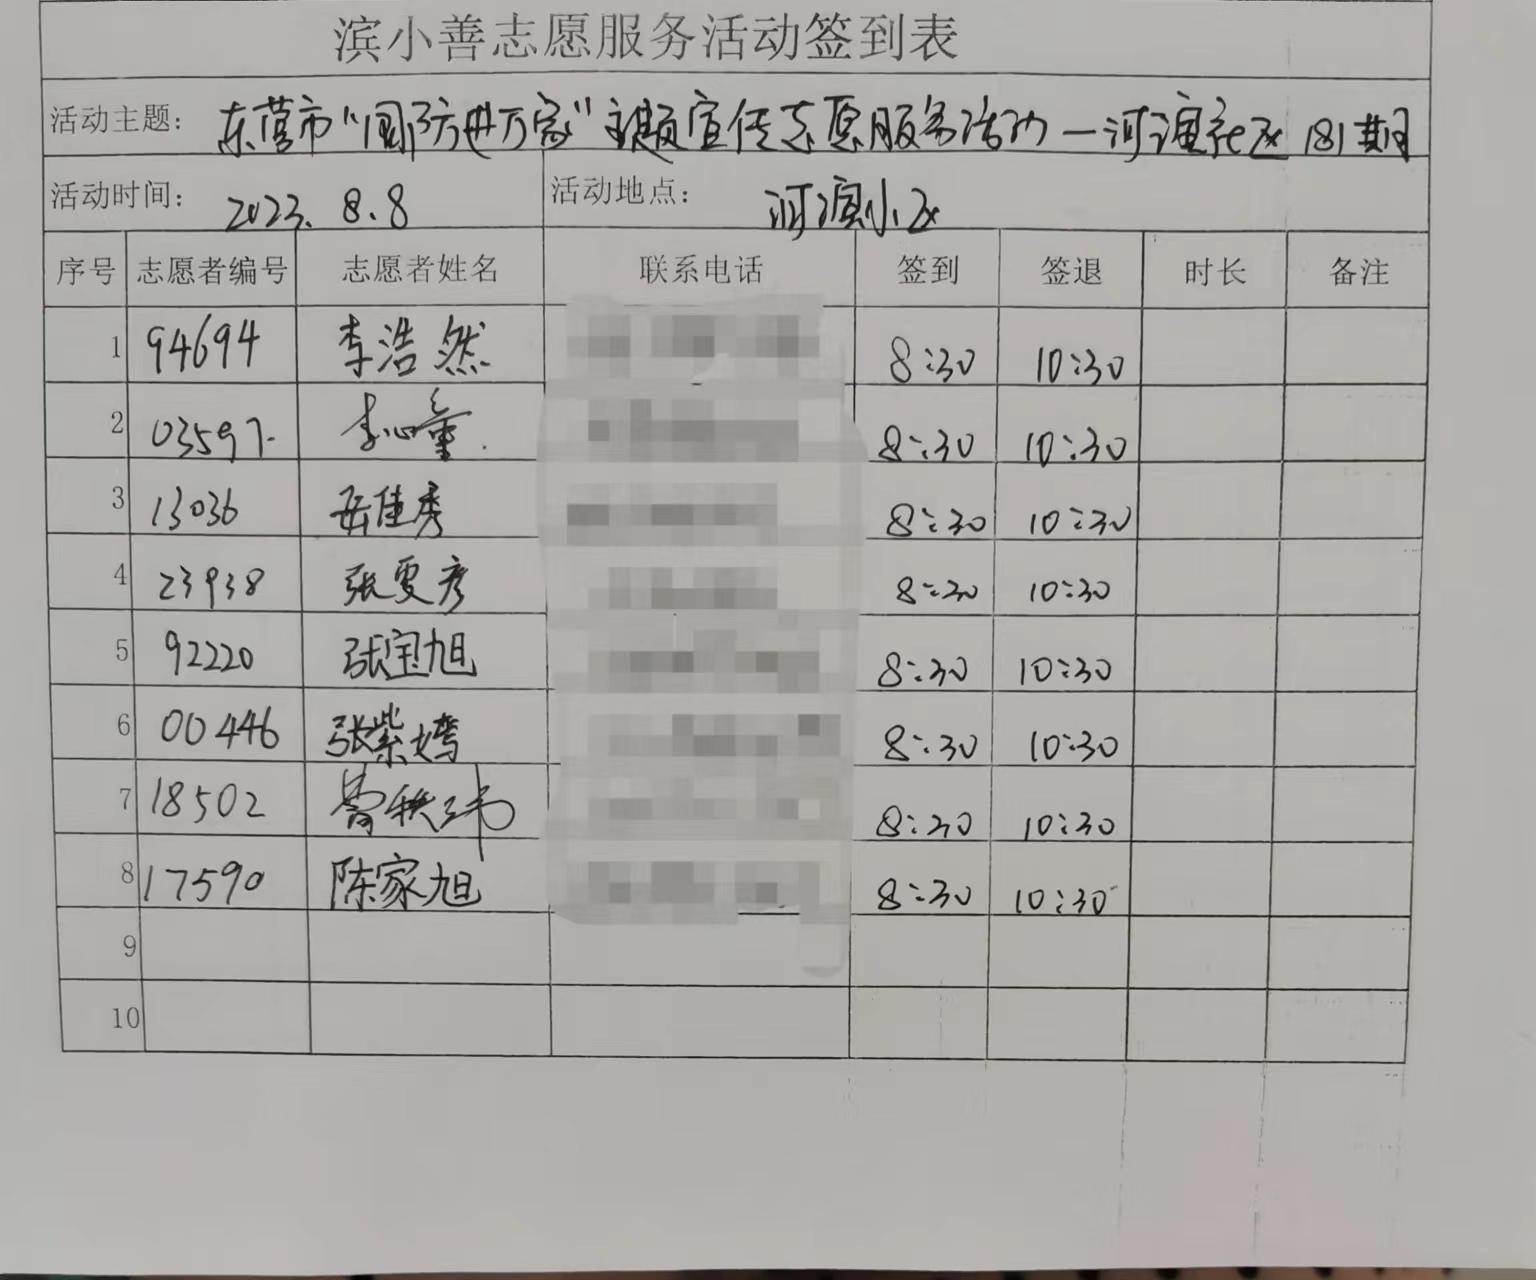 滨小善志愿服务活动签到表
活动主题: 东营市“国防进万家”主题宣传志愿服务活动—河滨社区181期
活动时间: 2023.8.8 活动地点: 河滨小区
序号 志愿者编号 志愿者姓名 联系电话 签到 签退 时长 备注
1 94694 李浩然 8:30 10:30
2 03597 李心童 8:30 10:30
3 13036 岳佳秀 8:30 10:30
4 23938 张雯彦 8:30 10:30
5 92220 张宝旭 8:30 10:30
6 00446 张紫嫣 8:30 10:30
7 18502 8:30 10:30
8 17590 陈家旭 8:30 10:30
9
10